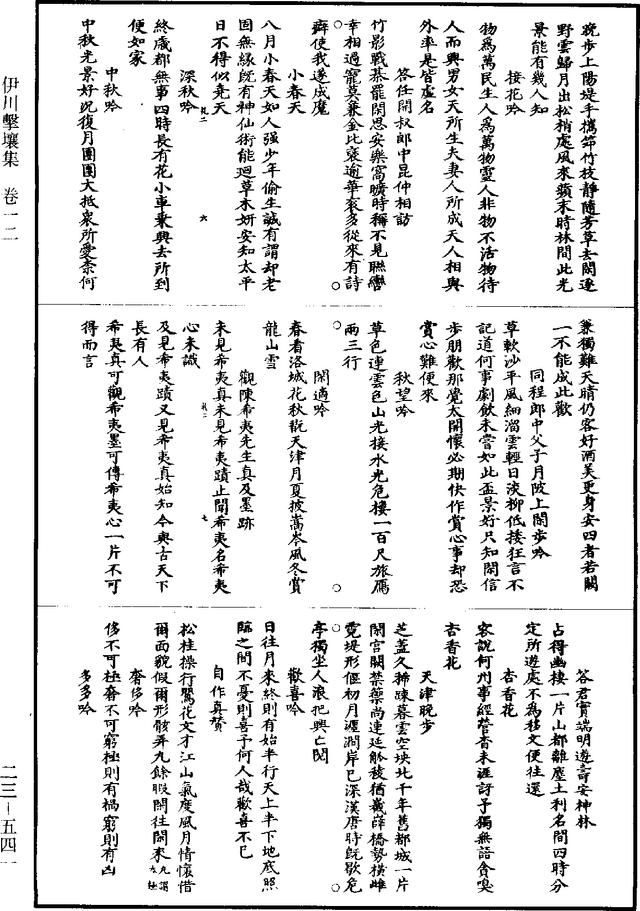 伊川擊壤集　卷一二
二三—五四一
晚步上陽堤手攜筇竹枝靜隨芳草去閑逐
野雲歸月出松梢處風來蘋末時林間此光
景能有幾人知
接花吟
物為萬民生人為萬物靈人非物不活物待
人而興男女天所生夫妻人所成天人相與
外率是皆虛名
答任開叔郎中昆仲相訪
竹影戰棊罷閑思安樂窩曠時稱不見聯轡
幸相過寵莫兼金比褒逾華袞多從來有詩
癖使我遂成魔
小春天
八月小春天如人強少年偷生誠有謂却老
固無緣既有神仙術能迴草木妍安知太平
日不得似堯天
深秋吟
終歲都無事四時長有花小車乘興去所到
便如家
中秋吟
中秋光景好況復月團團大抵衆所愛柰何
兼獨難天晴仍客好酒美更身安四者若闕
一不能成此歡
同程郎中父子月陂上閑步吟
草軟沙平風細溜雲輕日淡柳低挼狂言不
記道何事劇飲未嘗如此盃景好只知閑信
步朋歡那覺太開懷必期快作賞心事却恐
賞心難便來
秋望吟
草色連雲色山光接水光危樓一百尺旅鴈
兩三行
閑適吟
春看洛城花秋翫天津月夏披嵩岑風冬賞
龍山雪
觀陳希夷先生真及墨跡
未見希夷真未見希夷蹟止聞希夷名希夷
心未識
及見希夷蹟又見希夷真始知今與古天下
長有人
希夷真可觀希夷墨可傳希夷心一片不可
得而言
答君實端明遊壽安神林
占得幽棲一片山都離塵土利名間四時分
定所遊處不為移文便往還
杏香花
客說何州事經營杳未涯訝予獨無語貪嗅
杏香花
天津晚步
芝蓋久稀疎暮雲空坱北千年舊都城一片
閑宮闕禁藥尚連延觚稜猶巀嶭橋勢橫雌
霓堤形偃初月瀍澗岸已深漢唐時既歇危
亭獨坐人浪把興亡閱
歡喜吟
日往月來終則有始半行天上半下地底照
臨之間不憂則喜予何人哉歡喜不已
自作真贊
松桂操行鶯花文才江山氣度風月情懷借
爾面貌假爾形骸弄丸餘暇閑往閑來丸謂太極
奢侈吟
侈不可極奢不可窮極則有禍窮則有凶
多多吟